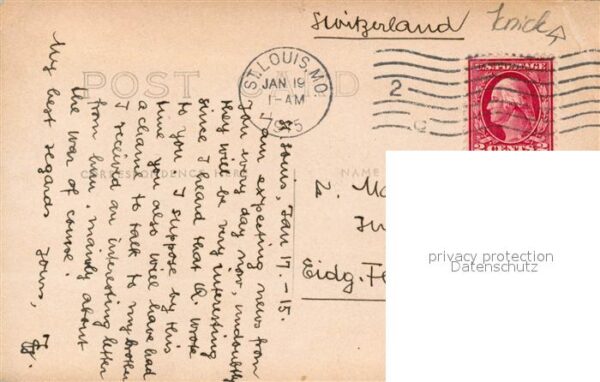 Switzerland
Knick
POST CARD
ST. LOUIS, MO.
JAN 19
1-AM
1915
2
CENTS 2
CORRESPONDENCE HERE
NAME
St Louis, Jan 17. -15.
I am expecting news from
you every day now, undoubtly
they will be very interesting
since I heard that R. wrote
to you. I suppose by this
time you also will have had
a chance to talk to my brother
I received an interesting letter
from him, mainly about
the war of course.
My best regards Yours,
Eidg.
privacy protection
Datenschutz